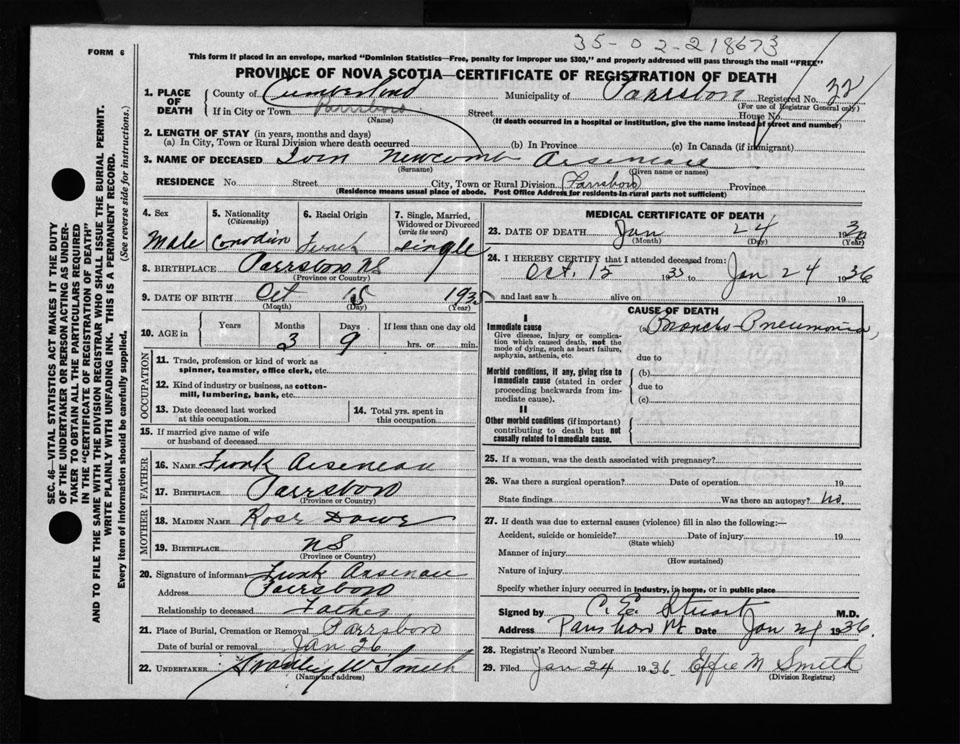 35-02-218673
FORM 6
This form if placed in an envelope, marked "Dominion Statistics—Free, penalty for improper use $300," and properly addressed will pass through the mail "FREE"
PROVINCE OF NOVA SCOTIA—CERTIFICATE OF REGISTRATION OF DEATH
1. PLACE OF DEATH County of Cumberland Municipality of Parrsboro Registered No. 32
(For use of Registrar General only)
If in City or Town Parrsboro Street House No.
(Name) (If death occurred in a hospital or institution, give the name instead of street and number)
2. LENGTH OF STAY (in years, months and days)
(a) In City, Town or Rural Division where death occurred (b) In Province (c) In Canada (if immigrant)
3. NAME OF DECEASED Newcomb Arseneau
(Surname) (Given name or names)
RESIDENCE No Street City, Town or Rural Division Parrsboro Province
(Residence means usual place of abode. Post Office Address for residents in rural parts not sufficient)
4. Sex 5. Nationality (Citizenship) 6. Racial Origin 7. Single, Married, Widowed or Divorced (write the word)
Male Canadian French single
8. BIRTHPLACE Parrsboro NS
(Province or Country)
9. DATE OF BIRTH Oct 15 1935
(Month) (Day) (Year)
10. AGE in Years Months Days If less than one day old
3 9 hrs. or min.
OCCUPATION
11. Trade, profession or kind of work as spinner, teamster, office clerk, etc.
12. Kind of industry or business, as cotton-mill, lumbering, bank, etc.
13. Date deceased last worked at this occupation
14. Total yrs. spent in this occupation
15. If married give name of wife or husband of deceased
FATHER
16. NAME Frank Arseneau
17. BIRTHPLACE Parrsboro
(Province or Country)
MOTHER
18. MAIDEN NAME Rose
19. BIRTHPLACE NS
(Province or Country)
20. Signature of informant Frank Arseneau
Address Parrsboro
Relationship to deceased Father
21. Place of Burial, Cremation or Removal Parrsboro
Date of burial or removal Jan 26
22. UNDERTAKER Smith
(Name and address)
MEDICAL CERTIFICATE OF DEATH
23. DATE OF DEATH Jan 24 1936
(Month) (Day) (Year)
24. I HEREBY CERTIFY that I attended deceased from:
Oct. 15 1935 Jan 24 1936
and last saw h alive on 19
CAUSE OF DEATH
I
Immediate cause (a) Broncho-Pneumonia
Give disease, injury or complication which caused death, not the mode of dying, such as heart failure, asphyxia, asthenia, etc.
due to
Morbid conditions, if any, giving rise to immediate cause (stated in order proceeding backwards from immediate cause).
(b)
due to
(c)
II
Other morbid conditions (if important) contributing to death but not causally related to immediate cause.
25. If a woman, was the death associated with pregnancy?
26. Was there a surgical operation? Date of operation 19
State findings Was there an autopsy? No.
27. If death was due to external causes (violence) fill in also the following:—
Accident, suicide or homicide? Date of injury 19
(State which)
Manner of injury
(How sustained)
Nature of injury
Specify whether injury occurred in industry, in home, or in public place
Signed by C. E. Stuart M.D.
Address Parrsboro Date Jan 24 1936.
28. Registrar's Record Number
29. Filed Jan 24 1936 Effie M Smith
(Division Registrar)
SEC. 46—VITAL STATISTICS ACT MAKES IT THE DUTY
OF THE UNDERTAKER OR PERSON ACTING AS UNDER-
TAKER TO OBTAIN ALL THE PARTICULARS REQUIRED
IN THE "CERTIFICATE OF REGISTRATION OF DEATH"
AND TO FILE THE SAME WITH THE DIVISION REGISTRAR WHO SHALL ISSUE THE BURIAL PERMIT.
WRITE PLAINLY WITH UNFADING INK. THIS IS A PERMANENT RECORD.
Every item of information should be carefully supplied. (See reverse side for instructions.)